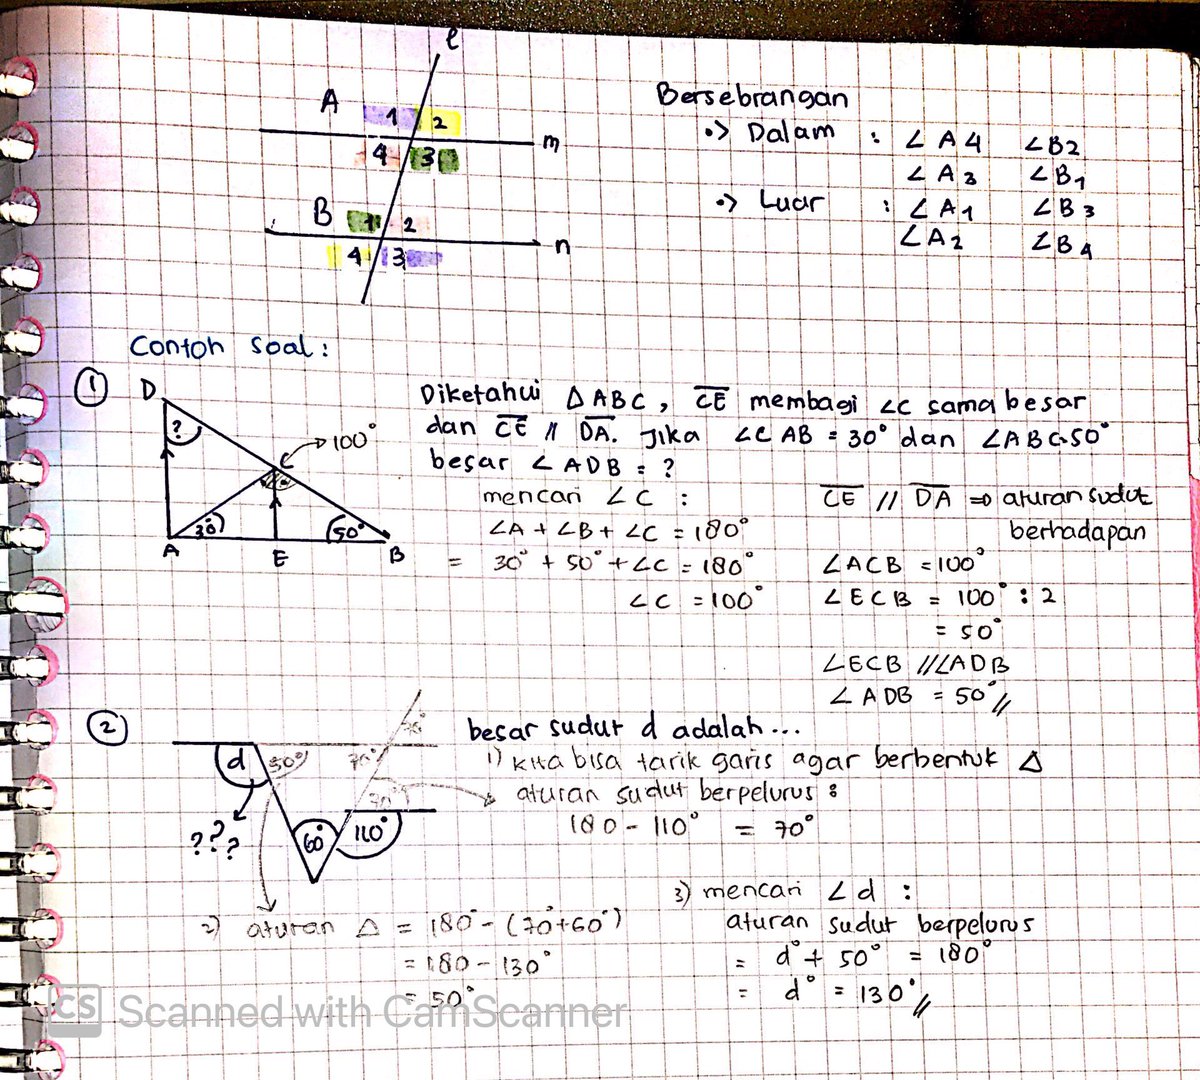 l
A 1 2
m
4 3
B 1 2
n
4 3
Bersebrangan
•> Dalam : ∠A4 ∠B2
∠A3 ∠B1
•> Luar : ∠A1 ∠B3
∠A2 ∠B4
Contoh soal:
①
D
?
C → 100°
30°
50°
A E B
Diketahui △ABC, CE membagi ∠C sama besar
dan CE // DA. Jika ∠CAB = 30° dan ∠ABC=50°
besar ∠ADB = ?
mencari ∠C :
∠A + ∠B + ∠C = 180°
= 30° + 50° + ∠C = 180°
∠C = 100°
CE // DA ⇒ aturan sudut
berhadapan
∠ACB = 100°
∠ECB = 100° : 2
= 50°
∠ECB // ∠ADB
∠ADB = 50° //
②
d 50° 70° 70°
70°
???
60° 110°
besar sudut d adalah...
1) kita bisa tarik garis agar berbentuk △
aturan sudut berpelurus :
180 - 110° = 70°
2) aturan △ = 180° - (70°+60°)
= 180 - 130°
= 50°
3) mencari ∠d :
aturan sudut berpelurus
= d° + 50° = 180°
= d° = 130° //
CS Scanned with CamScanner